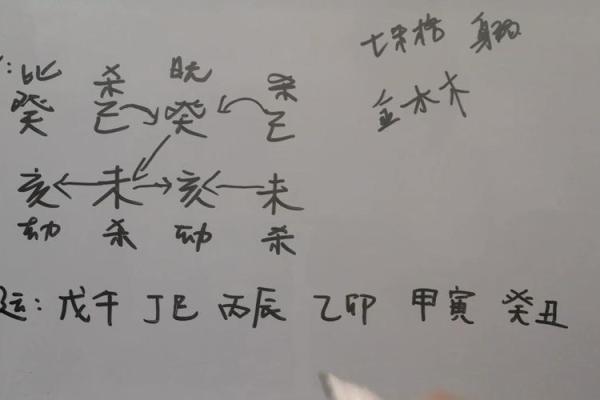 七杀格 身弱
: 比 杀 日元 杀
金水木
癸 己 癸 己
亥 未 亥 未
劫 杀 劫 杀
运: 戊午 丁巳 丙辰 乙卯 甲寅 癸丑